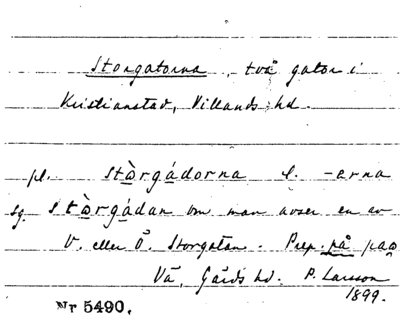 Storgatorna, två gator i
Kristianstad, Villands hd.
pl. stà̱rgá̱dorna l. -erna
sg. stà̱rgá̱dan om man avser en av
V. eller Ö. Storgatan. Prep. på paa
Vä, Gärds hd. P. Larsson
1899.
Nr 5490.